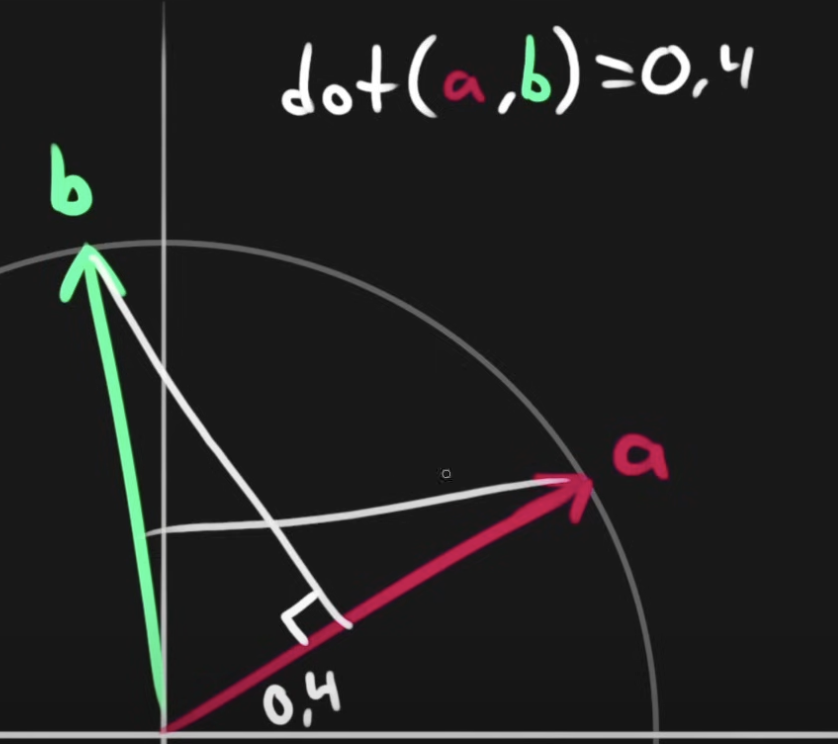 dot(a,b)=0,4
b
a
0,4